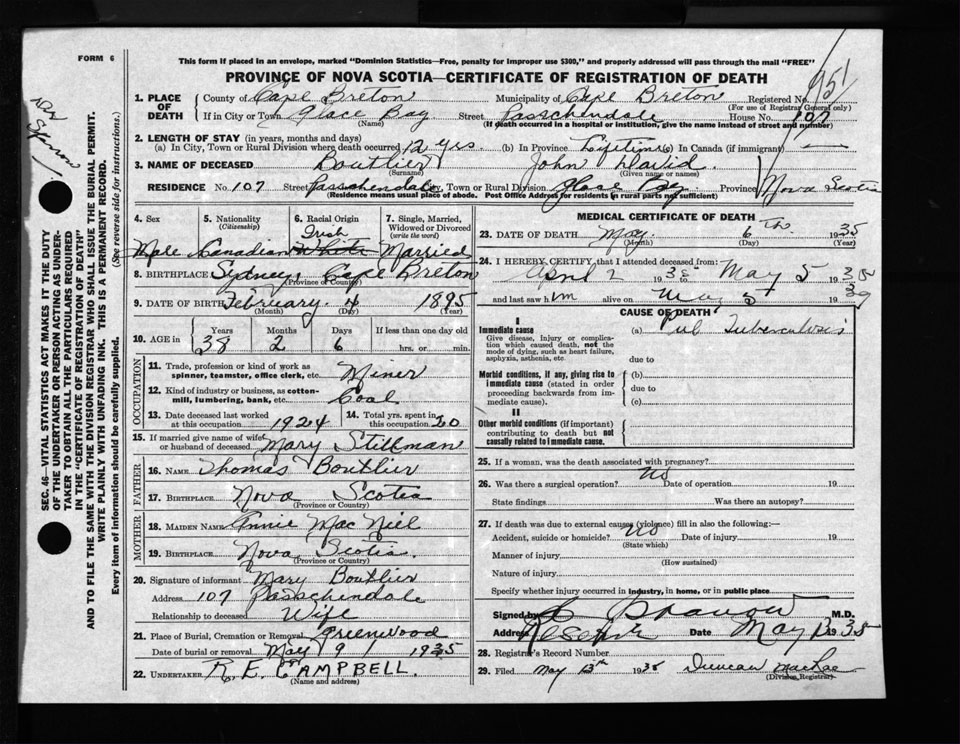 FORM 6
This form if placed in an envelope, marked "Dominion Statistics—Free, penalty for improper use $300," and properly addressed will pass through the mail "FREE"
PROVINCE OF NOVA SCOTIA—CERTIFICATE OF REGISTRATION OF DEATH
951
Dr
SEC. 46—VITAL STATISTICS ACT MAKES IT THE DUTY
OF THE UNDERTAKER OR PERSON ACTING AS UNDER-
TAKER TO OBTAIN ALL THE PARTICULARS REQUIRED
IN THE "CERTIFICATE OF REGISTRATION OF DEATH"
AND TO FILE THE SAME WITH THE DIVISION REGISTRAR WHO SHALL ISSUE THE BURIAL PERMIT.
WRITE PLAINLY WITH UNFADING INK. THIS IS A PERMANENT RECORD.
Every item of information should be carefully supplied. (See reverse side for instructions.)
1. PLACE OF DEATH
County of Cape Breton Municipality of Cape Breton Registered No.
(For use of Registrar General only)
If in City or Town Glace Bay Street Passchendale House No. 107
(Name) (If death occurred in a hospital or institution, give the name instead of street and number)
2. LENGTH OF STAY (in years, months and days)
(a) In City, Town or Rural Division where death occurred 12 yrs. (b) In Province Lifetime (c) In Canada (if immigrant) —
3. NAME OF DECEASED Boutlier John David.
(Surname) (Given name or names)
RESIDENCE No. 107 Street Passchendale City, Town or Rural Division Glace Bay Province Nova Scotia
(Residence means usual place of abode. Post Office Address for residents in rural parts not sufficient)
4. Sex 5. Nationality 6. Racial Origin 7. Single, Married, Widowed or Divorced
(Citizenship) (write the word)
Irish
Male Canadian White Married
8. BIRTHPLACE Sydney, Cape Breton
(Province or Country)
9. DATE OF BIRTH February 4 1895
(Month) (Day) (Year)
10. AGE in Years Months Days If less than one day old
38 2 6 hrs. or min.
OCCUPATION
11. Trade, profession or kind of work as spinner, teamster, office clerk, etc. Miner
12. Kind of industry or business, as cotton-mill, lumbering, bank, etc. Coal
13. Date deceased last worked at this occupation 1924 14. Total yrs. spent in this occupation 20
15. If married give name of wife or husband of deceased Mary Stillman
FATHER
16. NAME Thomas Boutlier
17. BIRTHPLACE Nova Scotia
(Province or Country)
MOTHER
18. MAIDEN NAME Annie MacNiel
19. BIRTHPLACE Nova Scotia.
(Province or Country)
20. Signature of informant Mary Boutlier
Address 107 Passchendale
Relationship to deceased Wife
21. Place of Burial, Cremation or Removal Greenwood
Date of burial or removal May 9 1935
22. UNDERTAKER R. E. CAMPBELL.
(Name and address)
MEDICAL CERTIFICATE OF DEATH
23. DATE OF DEATH May 6th 1935
(Month) (Day) (Year)
24. I HEREBY CERTIFY that I attended deceased from:
April 2 1935 to May 5 1935
and last saw him alive on May 5 19
CAUSE OF DEATH
I
Immediate cause (a) Pul Tuberculosis
Give disease, injury or complication which caused death, not the mode of dying, such as heart failure, asphyxia, asthenia, etc. due to
Morbid conditions, if any, giving rise to immediate cause (stated in order proceeding backwards from immediate cause). (b)
due to
(c)
II
Other morbid conditions (if important) contributing to death but not causally related to immediate cause.
25. If a woman, was the death associated with pregnancy?
26. Was there a surgical operation? No Date of operation 19
State findings Was there an autopsy?
27. If death was due to external causes (violence) fill in also the following:—
Accident, suicide or homicide? No Date of injury 19
(State which)
Manner of injury
(How sustained)
Nature of injury
Specify whether injury occurred in industry, in home, or in public place
Signed by M.D.
Address Reserve Date May 13 1935
28. Registrar's Record Number
29. Filed May 13th 1935 Duncan MacRae
(Division Registrar)